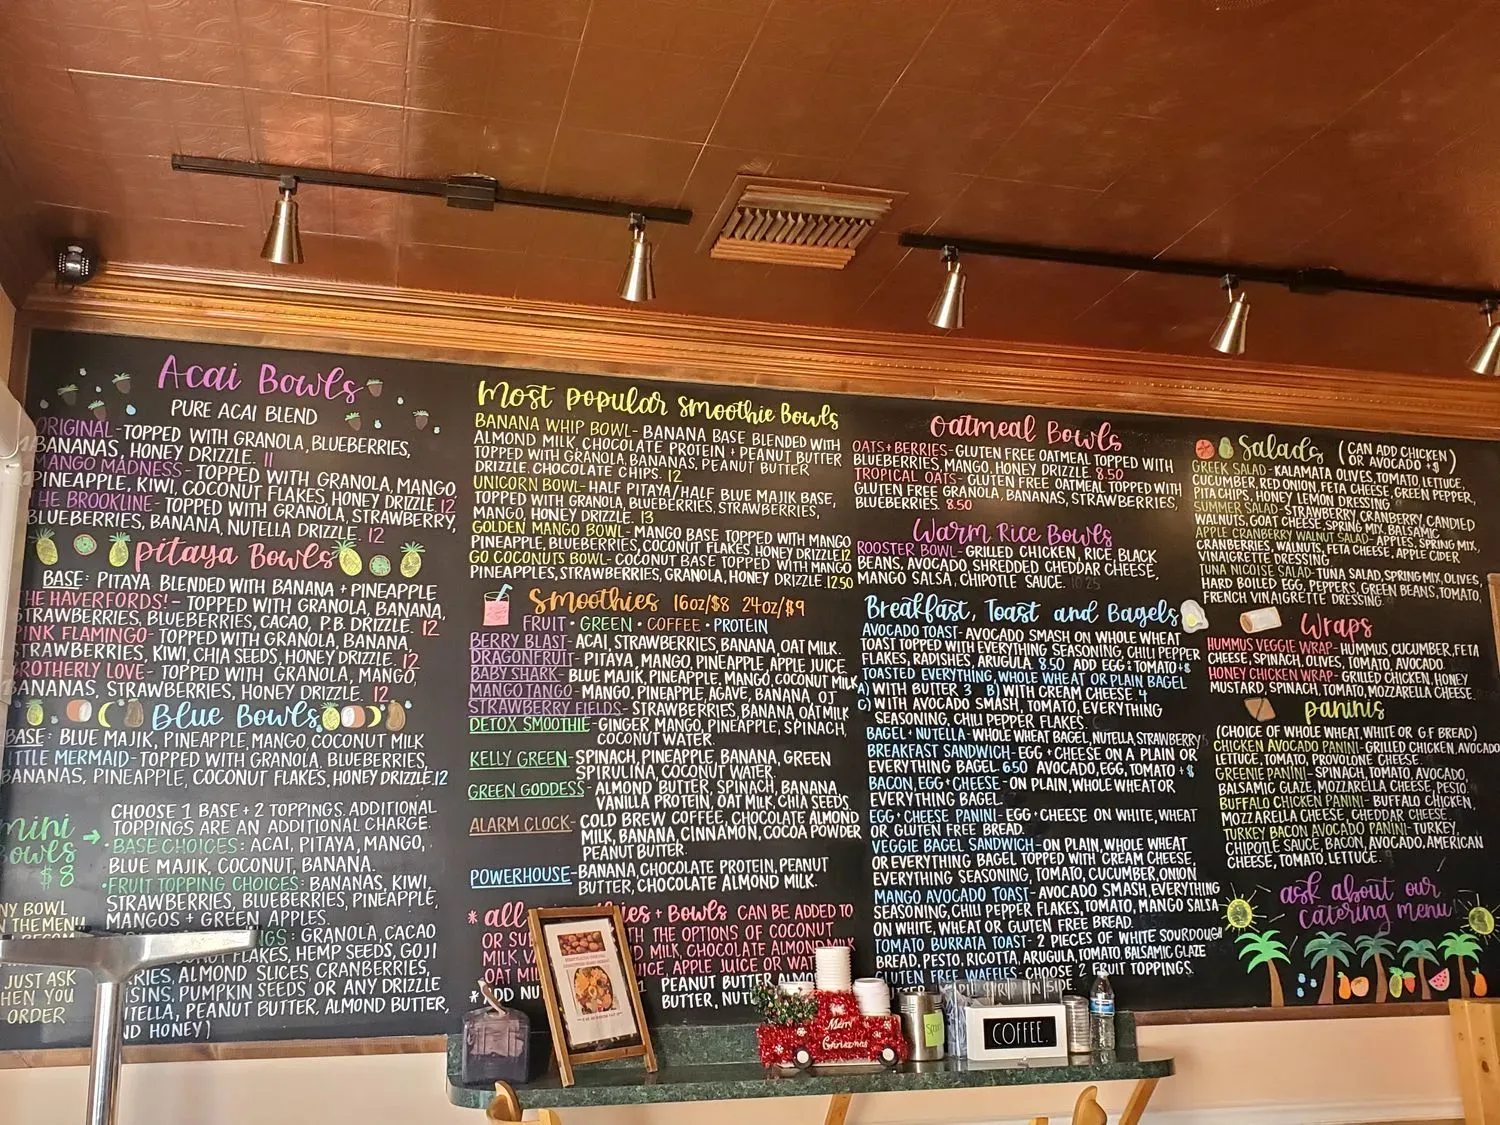 Acai Bowls
PURE ACAI BLEND
ORIGINAL-TOPPED WITH GRANOLA, BLUEBERRIES,
BANANAS, HONEY DRIZZLE. 11
MANGO MADNESS-TOPPED WITH GRANOLA, MANGO
PINEAPPLE, KIWI, COCONUT FLAKES, HONEY DRIZZLE. 12
THE BROOKLINE-TOPPED WITH GRANOLA, STRAWBERRY,
BLUEBERRIES, BANANA, NUTELLA DRIZZLE. 12
pitaya Bowls
BASE: PITAYA BLENDED WITH BANANA + PINEAPPLE
THE HAVERFORDS!-TOPPED WITH GRANOLA, BANANA,
STRAWBERRIES, BLUEBERRIES, CACAO, P.B. DRIZZLE. 12
PINK FLAMINGO-TOPPED WITH GRANOLA, BANANA,
STRAWBERRIES, KIWI, CHIA SEEDS, HONEY DRIZZLE. 12
BROTHERLY LOVE-TOPPED WITH GRANOLA, MANGO,
BANANAS, STRAWBERRIES, HONEY DRIZZLE. 12
Blue Bowls
BASE: BLUE MAJIK, PINEAPPLE, MANGO, COCONUT MILK
LITTLE MERMAID-TOPPED WITH GRANOLA, BLUEBERRIES,
BANANAS, PINEAPPLE, COCONUT FLAKES, HONEY DRIZZLE.12
mini
Bowls
$8
CHOOSE 1 BASE + 2 TOPPINGS. ADDITIONAL
TOPPINGS ARE AN ADDITIONAL CHARGE.
•BASE CHOICES: ACAI, PITAYA, MANGO,
BLUE MAJIK, COCONUT, BANANA.
•FRUIT TOPPING CHOICES: BANANAS, KIWI,
STRAWBERRIES, BLUEBERRIES, PINEAPPLE,
MANGOS + GREEN APPLES.
GRANOLA, CACAO
FLAKES, HEMP SEEDS, GOJI
ALMOND SLICES, CRANBERRIES,
PUMPKIN SEEDS OR ANY DRIZZLE
PEANUT BUTTER, ALMOND BUTTER,
HONEY)
BOWL
JUST ASK
YOU
ORDER
Most popular smoothie Bowls
BANANA WHIP BOWL-BANANA BASE BLENDED WITH
ALMOND MILK, CHOCOLATE PROTEIN + PEANUT BUTTER
TOPPED WITH GRANOLA, BANANAS, PEANUT BUTTER
DRIZZLE. CHOCOLATE CHIPS. 12
UNICORN BOWL-HALF PITAYA/HALF BLUE MAJIK BASE,
TOPPED WITH GRANOLA, BLUEBERRIES, STRAWBERRIES,
MANGO, HONEY DRIZZLE. 13
GOLDEN MANGO BOWL-MANGO BASE TOPPED WITH MANGO
PINEAPPLE, BLUEBERRIES, COCONUT FLAKES, HONEY DRIZZLE 12
GO COCONUTS BOWL-COCONUT BASE TOPPED WITH MANGO
PINEAPPLES, STRAWBERRIES, GRANOLA, HONEY DRIZZLE. 12.50
smoothies 16oz/$8 24oz/$9
FRUIT • GREEN • COFFEE • PROTEIN
BERRY BLAST-ACAI, STRAWBERRIES, BANANA, OAT MILK.
DRAGONFRUIT-PITAYA, MANGO, PINEAPPLE, APPLE JUICE.
BABY SHARK-BLUE MAJIK, PINEAPPLE, MANGO, COCONUT MILK
MANGO TANGO-MANGO, PINEAPPLE, AGAVE, BANANA, OJ
STRAWBERRY FIELDS-STRAWBERRIES, BANANA, OATMILK
DETOX SMOOTHIE-GINGER MANGO, PINEAPPLE, SPINACH,
COCONUT WATER.
KELLY GREEN-SPINACH, PINEAPPLE, BANANA, GREEN
SPIRULINA, COCONUT WATER.
GREEN GODDESS-ALMOND BUTTER, SPINACH, BANANA,
VANILLA PROTEIN, OAT MILK, CHIA SEEDS
ALARM CLOCK-COLD BREW COFFEE, CHOCOLATE ALMOND
MILK, BANANA, CINNAMON, COCOA POWDER
PEANUT BUTTER.
POWERHOUSE-BANANA, CHOCOLATE PROTEIN, PEANUT
BUTTER, CHOCOLATE ALMOND MILK.
* all + Bowls CAN BE ADDED TO
OR WITH THE OPTIONS OF COCONUT
MILK, MILK, CHOCOLATE ALMOND MILK
OAT JUICE, APPLE JUICE OR
* ADD PEANUT BUTTER,
BUTTER,
Oatmeal Bowls
OATS+BERRIES-GLUTEN FREE OATMEAL TOPPED WITH
BLUEBERRIES, MANGO, HONEY DRIZZLE. 8.50
TROPICAL OATS-GLUTEN FREE OATMEAL TOPPED WITH
GLUTEN FREE GRANOLA, BANANAS, STRAWBERRIES,
BLUEBERRIES. 8.50
Warm Rice Bowls
ROOSTER BOWL-GRILLED CHICKEN, RICE, BLACK
BEANS, AVOCADO, SHREDDED CHEDDAR CHEESE,
MANGO SALSA, CHIPOTLE SAUCE.
Breakfast, Toast and Bagels
AVOCADO TOAST-AVOCADO SMASH ON WHOLE WHEAT
TOAST TOPPED WITH EVERYTHING SEASONING, CHILI PEPPER
FLAKES, RADISHES, ARUGULA. 8.50 ADD EGG+TOMATO+$
TOASTED EVERYTHING, WHOLE WHEAT OR PLAIN BAGEL
A) WITH BUTTER 3 B) WITH CREAM CHEESE. 4
C) WITH AVOCADO SMASH, TOMATO, EVERYTHING
SEASONING, CHILI PEPPER FLAKES.
BAGEL + NUTELLA-WHOLE WHEAT BAGEL, NUTELLA, STRAWBERRY
BREAKFAST SANDWICH-EGG + CHEESE ON A PLAIN OR
EVERYTHING BAGEL 6.50 AVOCADO, EGG, TOMATO + $
BACON, EGG + CHEESE-ON PLAIN, WHOLE WHEAT OR
EVERYTHING BAGEL.
EGG + CHEESE PANINI-EGG + CHEESE ON WHITE, WHEAT
OR GLUTEN FREE BREAD.
VEGGIE BAGEL SANDWICH-ON PLAIN, WHOLE WHEAT
OR EVERYTHING BAGEL TOPPED WITH CREAM CHEESE,
EVERYTHING SEASONING, TOMATO, CUCUMBER, ONION
MANGO AVOCADO TOAST-AVOCADO SMASH, EVERYTHING
SEASONING, CHILI PEPPER FLAKES, TOMATO, MANGO SALSA
ON WHITE, WHEAT OR GLUTEN FREE BREAD.
TOMATO BURRATA TOAST-2 PIECES OF WHITE SOURDOUGH
BREAD, PESTO, RICOTTA, ARUGULA, TOMATO, BALSAMIC GLAZE
GLUTEN FREE WAFFLES-CHOOSE 2 FRUIT TOPPINGS.
SYRUP IN SIDE.
Salads (CAN ADD CHICKEN
OR AVOCADO +$)
GREEK SALAD-KALAMATA OLIVES, TOMATO, LETTUCE,
CUCUMBER, RED ONION, FETA CHEESE, GREEN PEPPER,
PITA CHIPS, HONEY LEMON DRESSING
SUMMER SALAD-STRAWBERRY, CRANBERRY, CANDIED
WALNUTS, GOAT CHEESE, SPRING MIX, BALSAMIC
APPLE CRANBERRY WALNUT SALAD-APPLES, SPRING MIX,
CRANBERRIES, WALNUTS, FETA CHEESE, APPLE CIDER
VINAIGRETTE DRESSING.
TUNA NICOISE SALAD-TUNA SALAD, SPRING MIX, OLIVES,
HARD BOILED EGG, PEPPERS, GREEN BEANS, TOMATO,
FRENCH VINAIGRETTE DRESSING.
Wraps
HUMMUS VEGGIE WRAP-HUMMUS, CUCUMBER, FETA
CHEESE, SPINACH, OLIVES, TOMATO, AVOCADO.
HONEY CHICKEN WRAP-GRILLED CHICKEN, HONEY
MUSTARD, SPINACH, TOMATO, MOZZARELLA CHEESE.
paninis
(CHOICE OF WHOLE WHEAT, WHITE OR G.F BREAD)
CHICKEN AVOCADO PANINI-GRILLED CHICKEN, AVOCADO
LETTUCE, TOMATO, PROVOLONE CHEESE.
GREENIE PANINI-SPINACH, TOMATO, AVOCADO,
BALSAMIC GLAZE, MOZZARELLA CHEESE, PESTO
BUFFALO CHICKEN PANINI-BUFFALO CHICKEN,
MOZZARELLA CHEESE, CHEDDAR CHEESE.
TURKEY BACON AVOCADO PANINI-TURKEY,
CHIPOTLE SAUCE, BACON, AVOCADO, AMERICAN
CHEESE, TOMATO, LETTUCE.
ask about our
catering menu
Merry
Christmas
COFFEE.